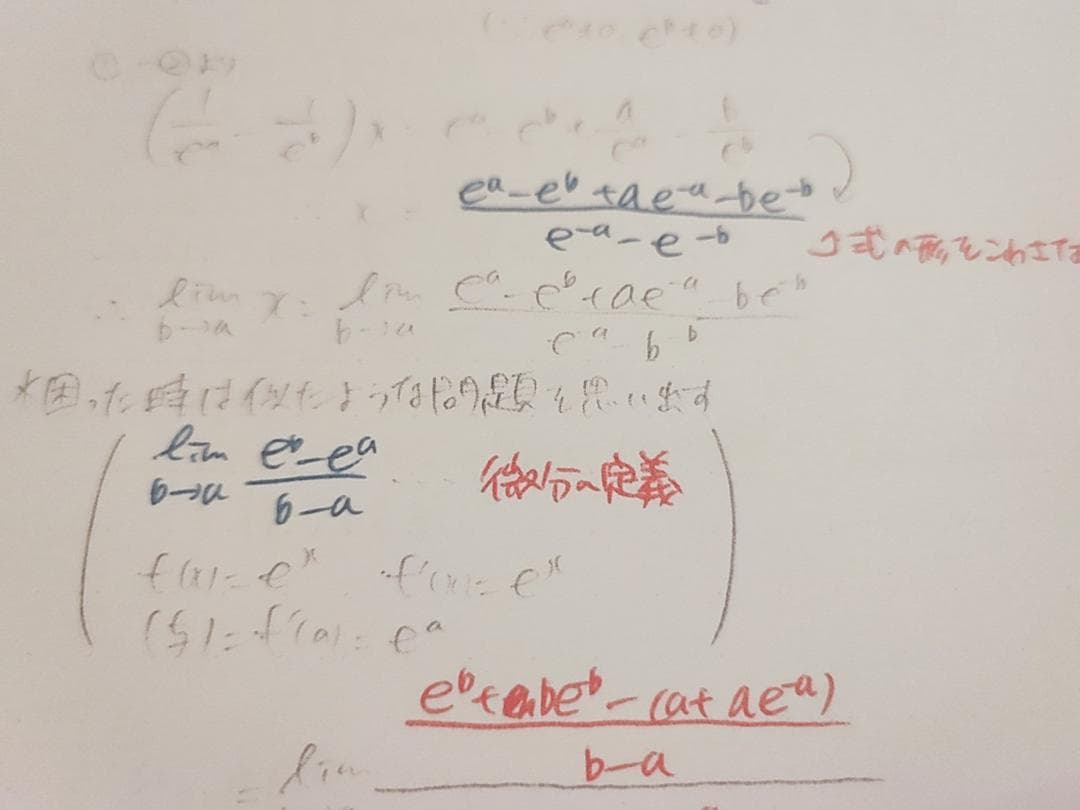 (∵ e^a≠0 e^b≠0)
①-②より
(1/e^a - 1/e^b)x = e^a - e^b + a/e^a - b/e^b
∴ x = (e^a - e^b + ae^-a - be^-b)/(e^-a - e^-b)
↑式の形をこわさな
∴ lim b→a x = lim b→a (e^a - e^b + ae^-a - be^-b)/(e^-a - b^-b)
*困った時は似たような問題を思い出す
lim b→a (e^b - e^a)/(b-a) ... 微分の定義
f(x) = e^x f'(x) = e^x
(与) = f'(a) = e^a
e^b + be^-b - (a + ae^-a)
b-a
= lim